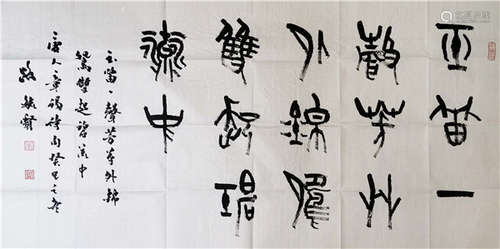 玉笛一
聲芳艸
外錦鴛
雙起碧
流中
玉笛一聲芳草外錦
鴛雙起碧流中
唐人章碣詩句癸巳之冬